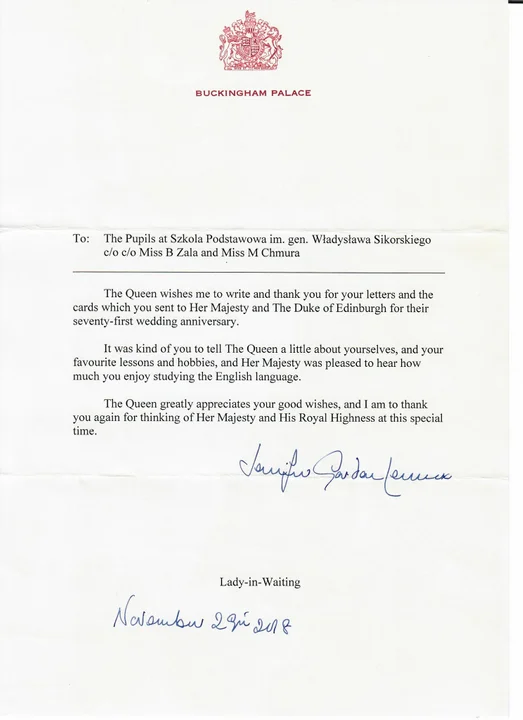 BUCKINGHAM PALACE
To: The Pupils at Szkola Podstawowa im. gen. Władysława Sikorskiego
c/o c/o Miss B Zala and Miss M Chmura
The Queen wishes me to write and thank you for your letters and the
cards which you sent to Her Majesty and The Duke of Edinburgh for their
seventy-first wedding anniversary.
It was kind of you to tell The Queen a little about yourselves, and your
favourite lessons and hobbies, and Her Majesty was pleased to hear how
much you enjoy studying the English language.
The Queen greatly appreciates your good wishes, and I am to thank
you again for thinking of Her Majesty and His Royal Highness at this special
time.
Jennifer Gordon Lennox
Lady-in-Waiting
November 29th 2018